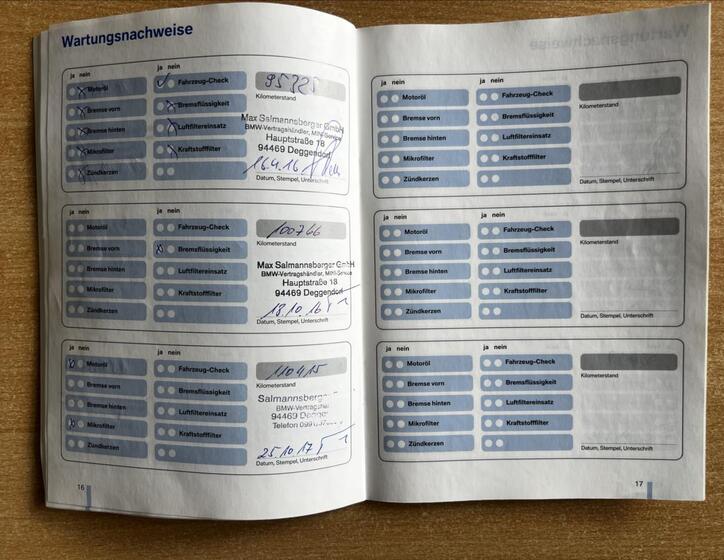 Wartungsnachweise
ja nein
Motoröl
Bremse vorn
Bremse hinten
Mikrofilter
Zündkerzen
ja nein
Fahrzeug-Check
Bremsflüssigkeit
Luftfiltereinsatz
Kraftstofffilter
95325
Kilometerstand
Max Salmannsberger GmbH
BMW-Vertragshändler, MINI-Service
Hauptstraße 18
94469 Deggendorf
16.4.16
Datum, Stempel, Unterschrift
ja nein
Motoröl
Bremse vorn
Bremse hinten
Mikrofilter
Zündkerzen
ja nein
Fahrzeug-Check
Bremsflüssigkeit
Luftfiltereinsatz
Kraftstofffilter
100766
Kilometerstand
Max Salmannsberger GmbH
BMW-Vertragshändler, MINI-Service
Hauptstraße 18
94469 Deggendorf
18.10.16
Datum, Stempel, Unterschrift
ja nein
Motoröl
Bremse vorn
Bremse hinten
Mikrofilter
Zündkerzen
ja nein
Fahrzeug-Check
Bremsflüssigkeit
Luftfiltereinsatz
Kraftstofffilter
110415
Kilometerstand
Salmannsberg
BMW-Vertragshä
94469 Degge
Telefon
25.10.17
Datum, Stempel, Unterschrift
16
ja nein
Motoröl
Bremse vorn
Bremse hinten
Mikrofilter
Zündkerzen
ja nein
Fahrzeug-Check
Bremsflüssigkeit
Luftfiltereinsatz
Kraftstofffilter
Kilometerstand
Datum, Stempel, Unterschrift
ja nein
Motoröl
Bremse vorn
Bremse hinten
Mikrofilter
Zündkerzen
ja nein
Fahrzeug-Check
Bremsflüssigkeit
Luftfiltereinsatz
Kraftstofffilter
Kilometerstand
Datum, Stempel, Unterschrift
ja nein
Motoröl
Bremse vorn
Bremse hinten
Mikrofilter
Zündkerzen
ja nein
Fahrzeug-Check
Bremsflüssigkeit
Luftfiltereinsatz
Kraftstofffilter
Kilometerstand
Datum, Stempel, Unterschrift
17